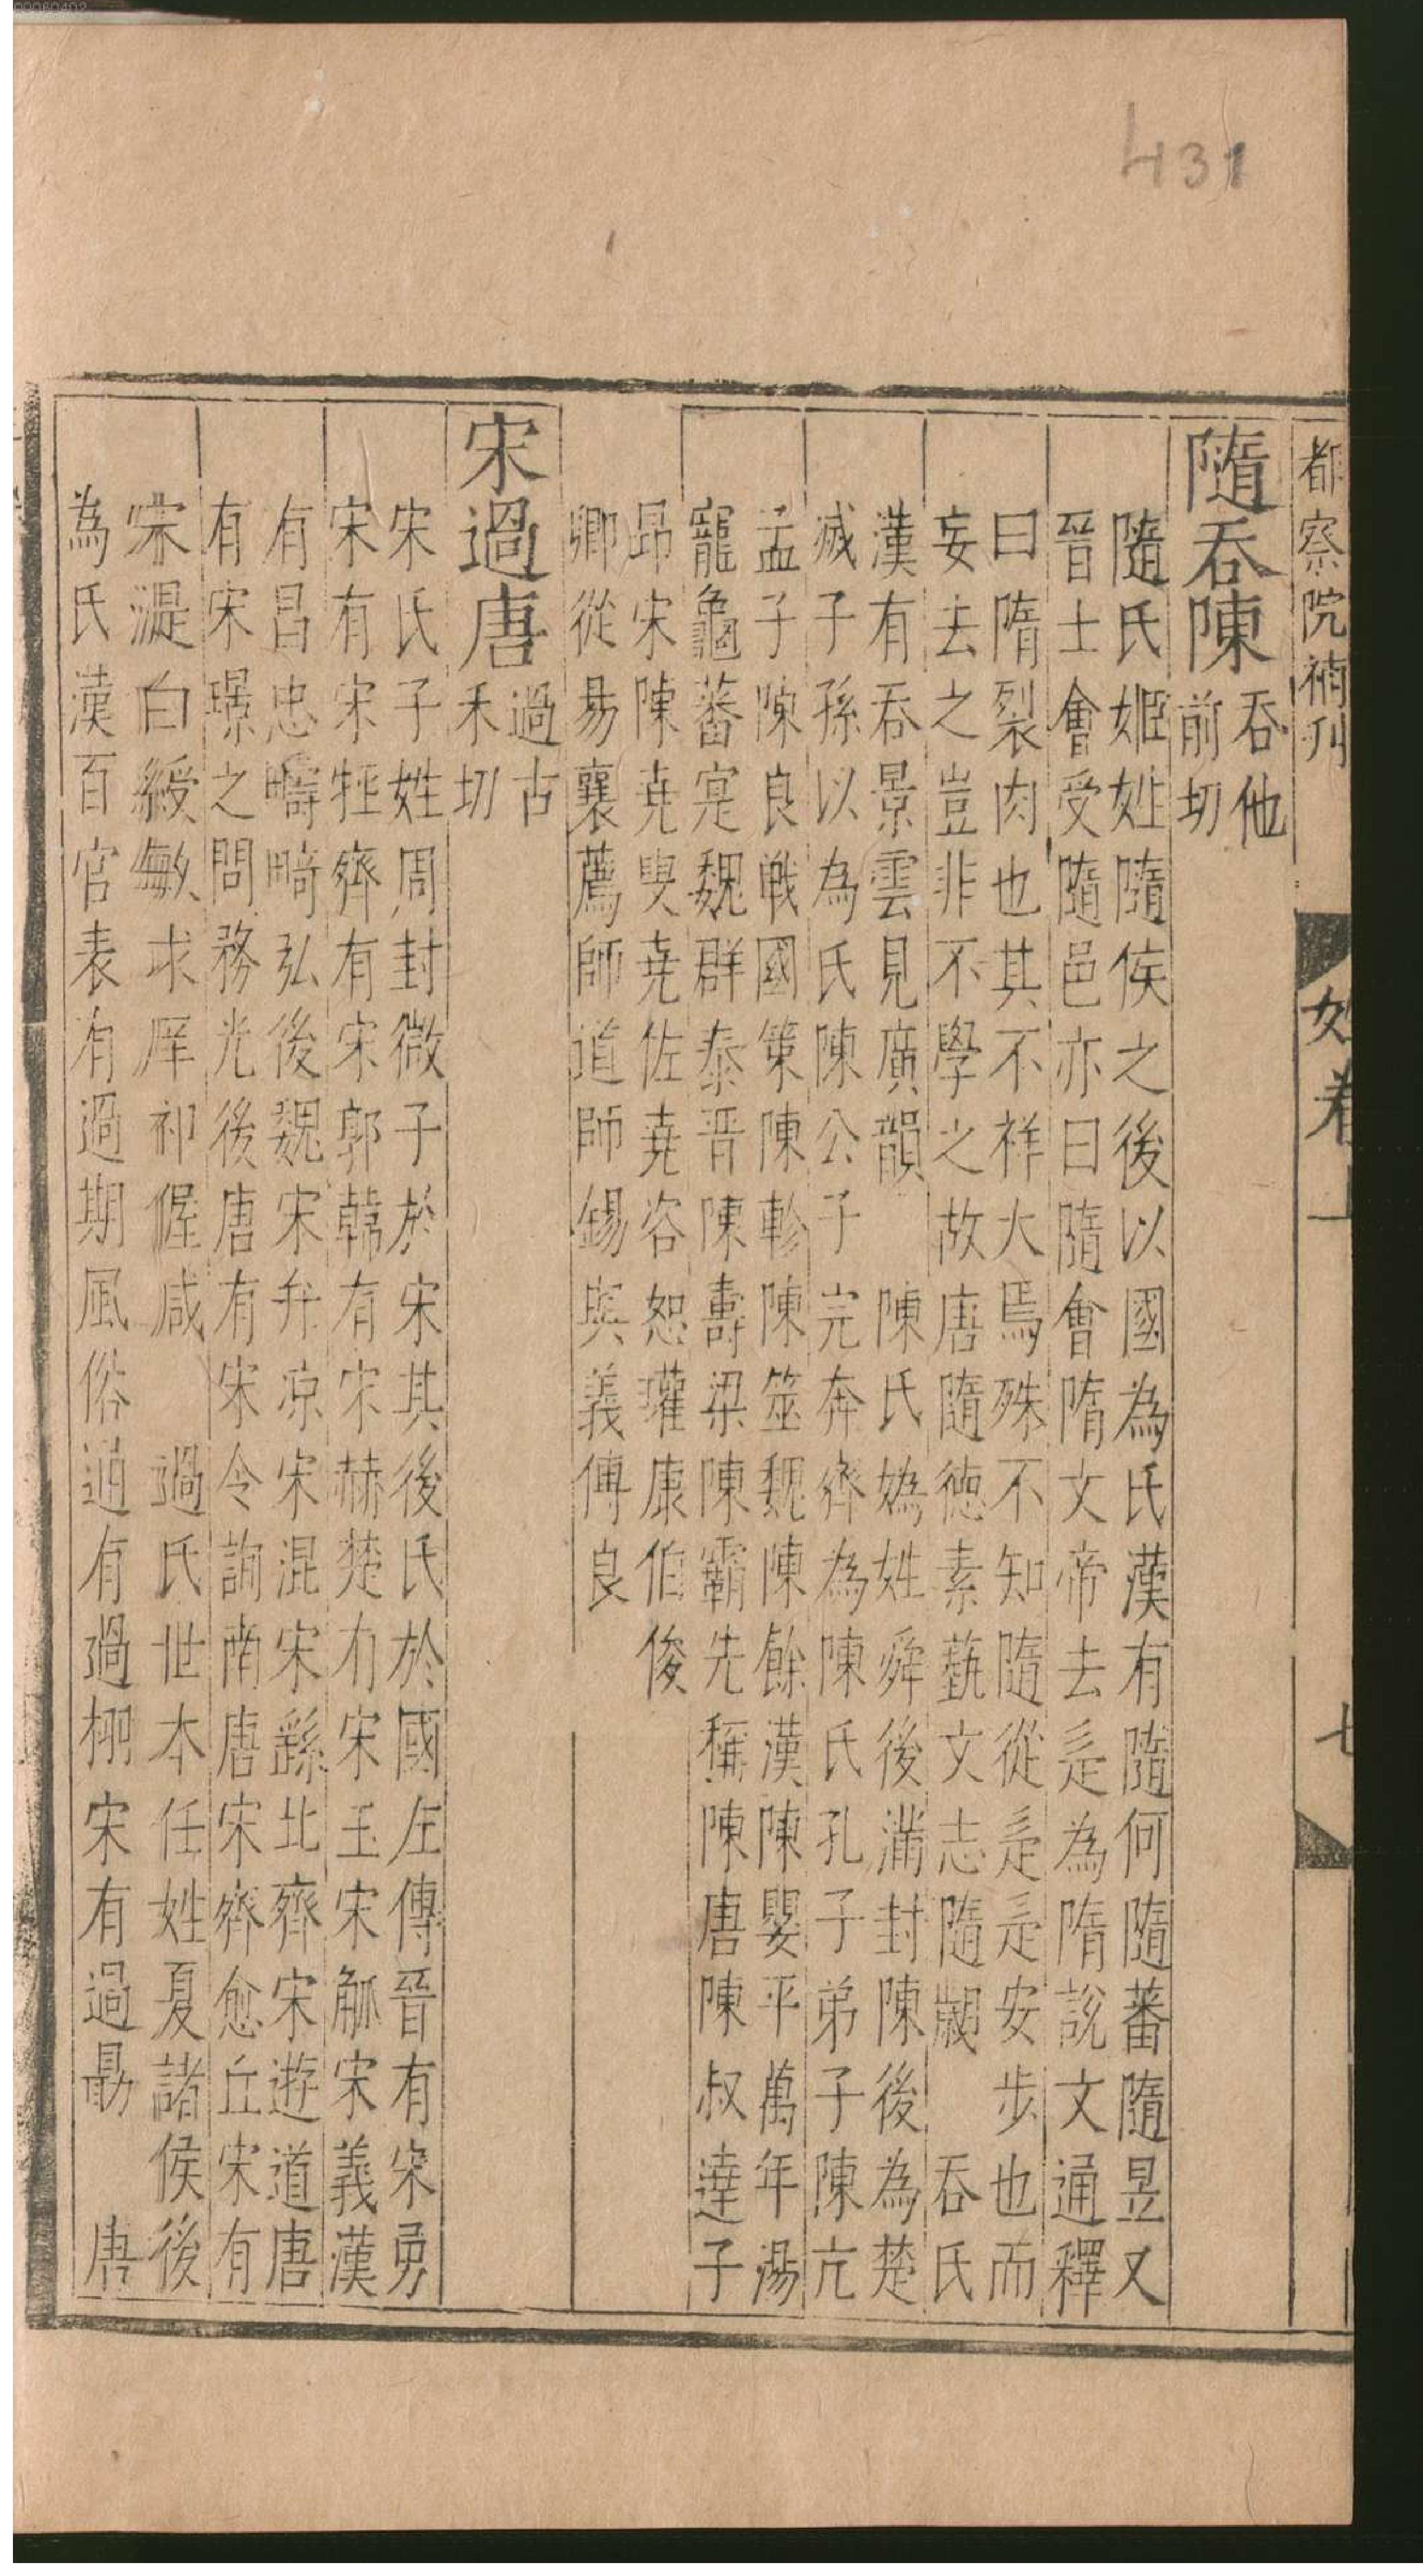 431
都察院補刋
姓卷上
七
隨吞陳
吞他
前切
隨氏姬姓隨侯之後以國為氏漢有隨何隨蕃隨昱又
晉士會受隨邑亦曰隨會隋文帝去辵為隋說文通釋
曰隋裂肉也其不祥大焉殊不知隨從辵辵安步也而
妄去之豈非不學之故唐隨德素藝文志隨 吞氏
漢有吞景雲見廣韻 陳氏媯姓舜後滿封陳後為楚
滅子孫以為氏陳公子完奔齊為陳氏孔子弟子陳亢
孟子陳良戰國策陳軫陳筮魏陳餘漢陳嬰平萬年湯
寵龜蕃寔魏群泰晉陳壽梁陳霸先稱陳唐陳叔達子
昂宋陳堯叟堯佐堯咨恕瓘康伯俊
卿從易襄薦師道師錫與義傅良
宋過唐
過古
禾切
宋氏子姓周封微子於宋其後氏於國左傳晉有宋勇
宋有宋牼齊有宋郭韓有宋赫楚有宋玉宋觚宋義漢
有昌忠疇畸弘後魏宋弁凉宋混宋繇北齊宋遊道唐
有宋璟之問務光後唐有宋令詢南唐宋齊愈丘宋有
宋湜白綬敏求庠祁偓咸 過氏世本任姓夏諸侯後
為氏漢百官表有過期風俗通有過栩宋有過勗 唐